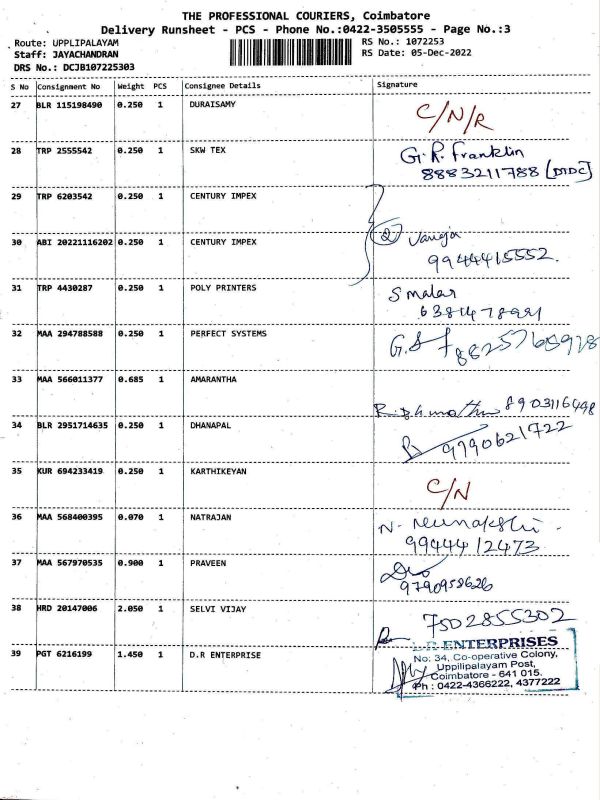 THE PROFESSIONAL COURIERS, Coimbatore
Delivery Runsheet - PCS - Phone No.:0422-3505555 - Page No.:3
Route: UPPLIPALAYAM
RS No.: 1072253
Staff: JAYACHANDRAN
RS Date: 05-Dec-2022
DRS No.: DCJB107225303
S No Consignment No Weight PCS Consignee Details Signature
27 BLR 115198490 0.250 1 DURAISAMY C/N/R
28 TRP 2555542 0.250 1 SKW TEX G.R. Franklin
8883211788 [DTDC]
29 TRP 6203542 0.250 1 CENTURY IMPEX
30 ABI 20221116202 0.250 1 CENTURY IMPEX 2
9944415552.
31 TRP 4430287 0.250 1 POLY PRINTERS S malar
32 MAA 294788588 0.250 1 PERFECT SYSTEMS
33 MAA 566011377 0.685 1 AMARANTHA
8903116498
34 BLR 2951714635 0.250 1 DHANAPAL 9790621722
35 KUR 694233419 0.250 1 KARTHIKEYAN C/N
36 MAA 568400395 0.070 1 NATRAJAN
9944412473
37 MAA 567970535 0.900 1 PRAVEEN
38 HRD 20147006 2.050 1 SELVI VIJAY 7502855302
39 PGT 6216199 1.450 1 D.R ENTERPRISE
D.R ENTERPRISES
No: 34, Co-operative Colony,
Uppilipalayam Post,
Coimbatore - 641 015.
Ph : 0422-4366222, 4377222